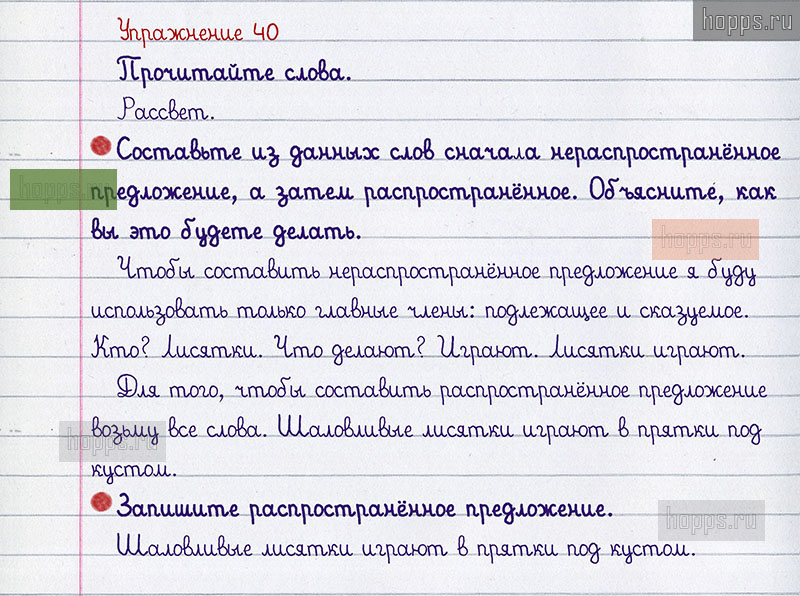 hopps.ru
Упражнение 40
Прочитайте слова.
Рассвет.
Составьте из данных слов сначала нераспространённое
hopps.ru
предложение, а затем распространённое. Объясните, как
вы это будете делать.
hopps.ru
Чтобы составить нераспространённое предложение я буду
использовать только главные члены: подлежащее и сказуемое.
Кто? Лисятки. Что делают? Играют. Лисятки играют.
Для того, чтобы составить распространённое предложение
возьму все слова. Шаловливые лисятки играют в прятки под
hopps.ru
кустом.
Запишите распространённое предложение.
hopps.ru
Шаловливые лисятки играют в прятки под кустом.